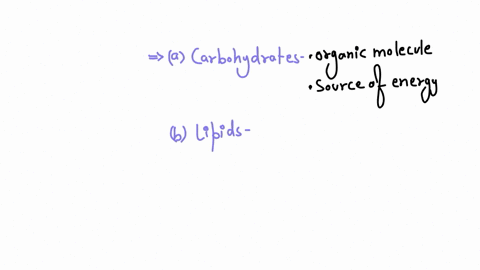 ⇒ (a) Carbohydrates- • organic molecule
• Source of energy
(b) Lipids-